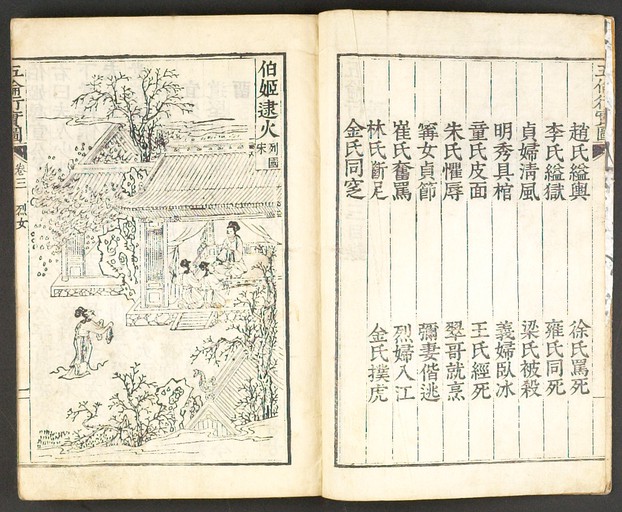 五倫行實圖
趙氏縊輿 徐氏罵死
李氏縊獄 雍氏同死
貞婦淸風 梁氏被殺
明秀具棺 義婦臥冰
童氏皮面 王氏經死
朱氏懼辱 翠哥就烹
甯女貞節 彌妻偕逃
崔氏奮罵 烈婦入江
林氏斷足 金氏撲虎
金氏同窆
伯姬逮火
列國
宋
五倫行實圖 卷三 烈女 一